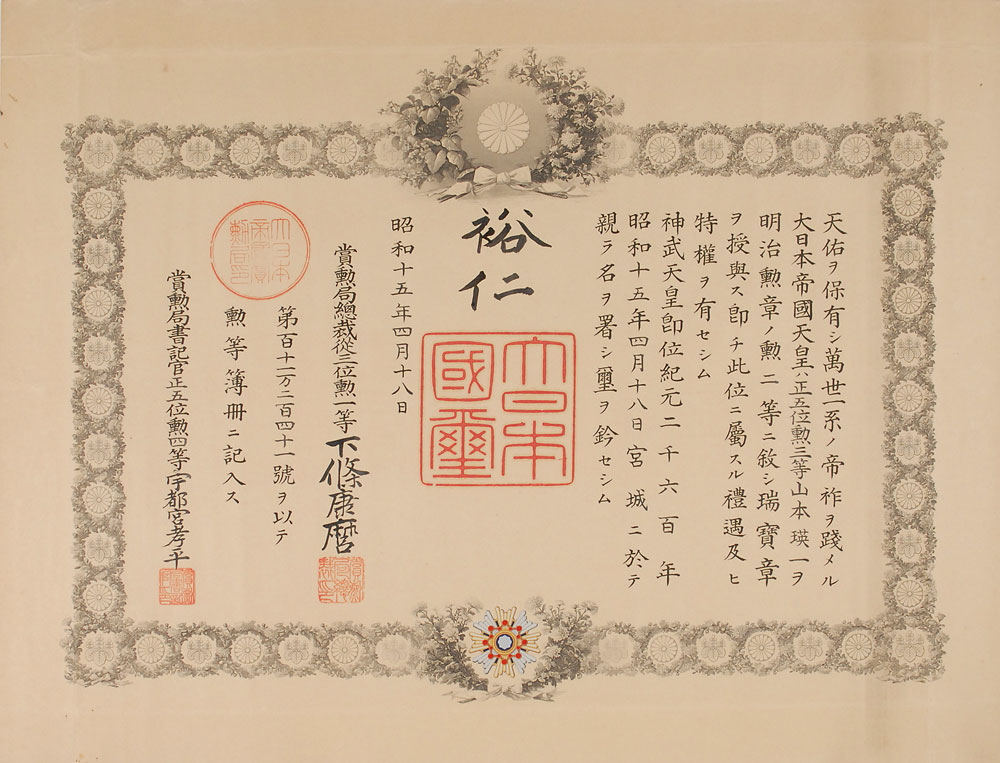 天佑ヲ保有シ萬世一系ノ帝祚ヲ踐メル
大日本帝國天皇ハ正五位勲三等山本瑛一ヲ
明治勲章ノ勲二等ニ敍シ瑞寶章
ヲ授與ス卽チ此位ニ屬スル禮遇及ヒ
特權ヲ有セシム
神武天皇卽位紀元二千六百年
昭和十五年四月十八日宮城ニ於テ
親ラ名ヲ署シ璽ヲ鈐セシム
裕仁
大日本國璽
昭和十五年四月十八日
賞勲局總裁從三位勲一等下條康麿
第百十二万二百四十一號ヲ以テ
勲等簿册ニ記入ス
大日本帝國賞勲局印
賞勲局書記官正五位勲四等宇都宮孝平